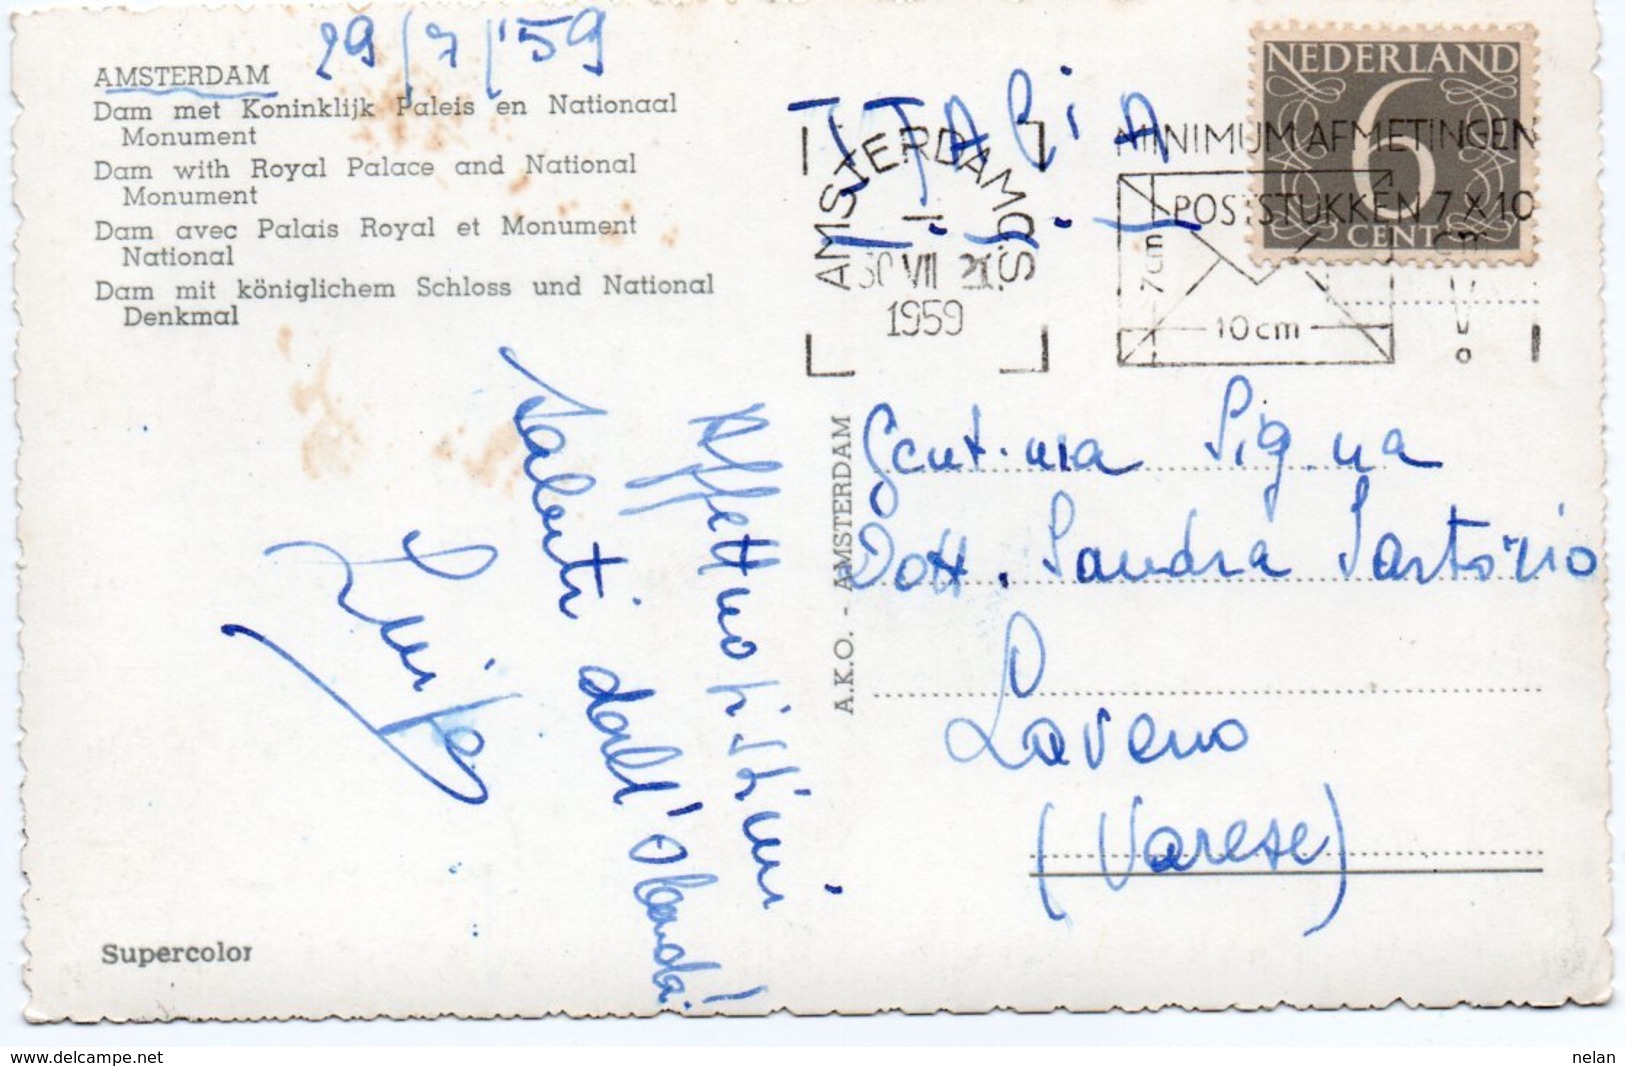 29/7/'59
AMSTERDAM
Dam met Koninklijk Paleis en Nationaal
Monument
Dam with Royal Palace and National
Monument
Dam avec Palais Royal et Monument
National
Dam mit königlichem Schloss und National
Denkmal
Affettuosissimi
saluti dall'Olanda!
Supercolor
A.K.O. - AMSTERDAM
NEDERLAND
6
CENT
AMSTERDAM
30 VII
1959
MINIMUM AFMETINGEN
POSTSTUKKEN 7 X 10
cm
7cm
10cm
!
ITALIA
Gent.ma Sig.na
Dott. Sandra Sartorio
Laveno
(Varese)
www.delcampe.net
nelan